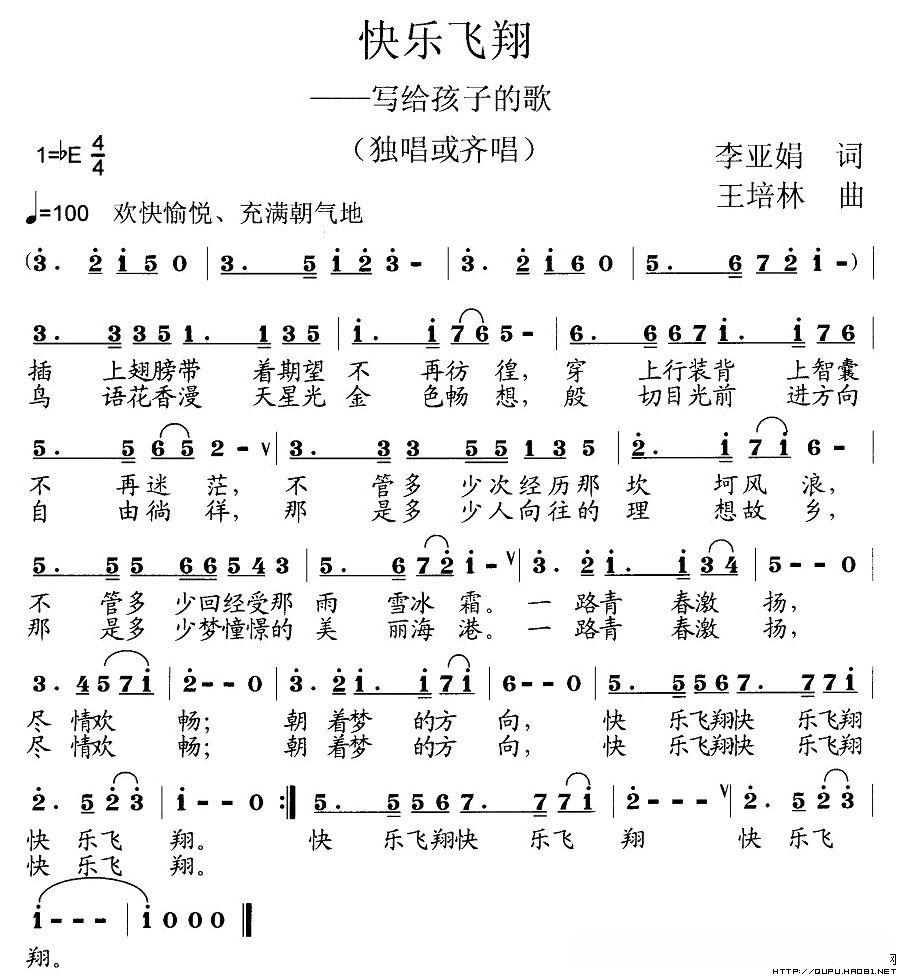 快乐飞翔
——写给孩子的歌
(独唱或齐唱)
1=♭E 4/4
李亚娟 词
王培林 曲
♩=100 欢快愉悦、充满朝气地
(3̇. 2̇ i 5 0 | 3. 5 i 2̇ 3̇ - | 3̇. 2̇ i 6 0 | 5. 6 7 2̇ i -) |
3. 3 3 5 1. 1 3 5 | i. i 7 6 5 - | 6. 6 6 7 i. i 7 6 |
插 上翅膀带 着期望 不 再彷 徨, 穿 上行装背 上智囊
鸟 语花香漫 天星光 金 色畅 想, 殷 切目光前 进方向
5. 5 6 5 2 - ∨ | 3. 3 3 5 5 1 3 5 | 2̇. i 7 i 6 - |
不 再迷 茫, 不 管多 少次经历那 坎 坷风 浪,
自 由徜 徉, 那 是多 少人向往的 理 想故 乡,
5. 5 5 6 6 5 4 3 | 5. 6 7 2̇ i - ∨ | 3̇. 2̇ i. i 3̇ 4̇ | 5 - - 0 |
不 管多 少回经受那 雨 雪冰 霜。 一 路青 春激 扬,
那 是多 少梦憧憬的 美 丽海 港。 一 路青 春激 扬,
3. 4 5 7 i | 2̇ - - 0 | 3̇. 2̇ i. i 7 i | 6 - - 0 | 5. 5 5 6 7. 7 7 i |
尽 情欢 畅; 朝 着梦 的方 向, 快 乐飞翔快 乐飞翔
尽 情欢 畅; 朝 着梦 的方 向, 快 乐飞翔快 乐飞翔
2̇. 5 2̇ 3̇ | i - - 0 :‖ 5. 5 5 6 7. 7 7 i | 2̇ - - - ∨ | 2̇. 5 2̇ 3̇ |
快 乐飞 翔。 快 乐飞翔快 乐飞 翔 快 乐飞
快 乐飞 翔。
i - - - | i 0 0 0 ‖
翔。
HTTP://QUPU.HAO81.NET